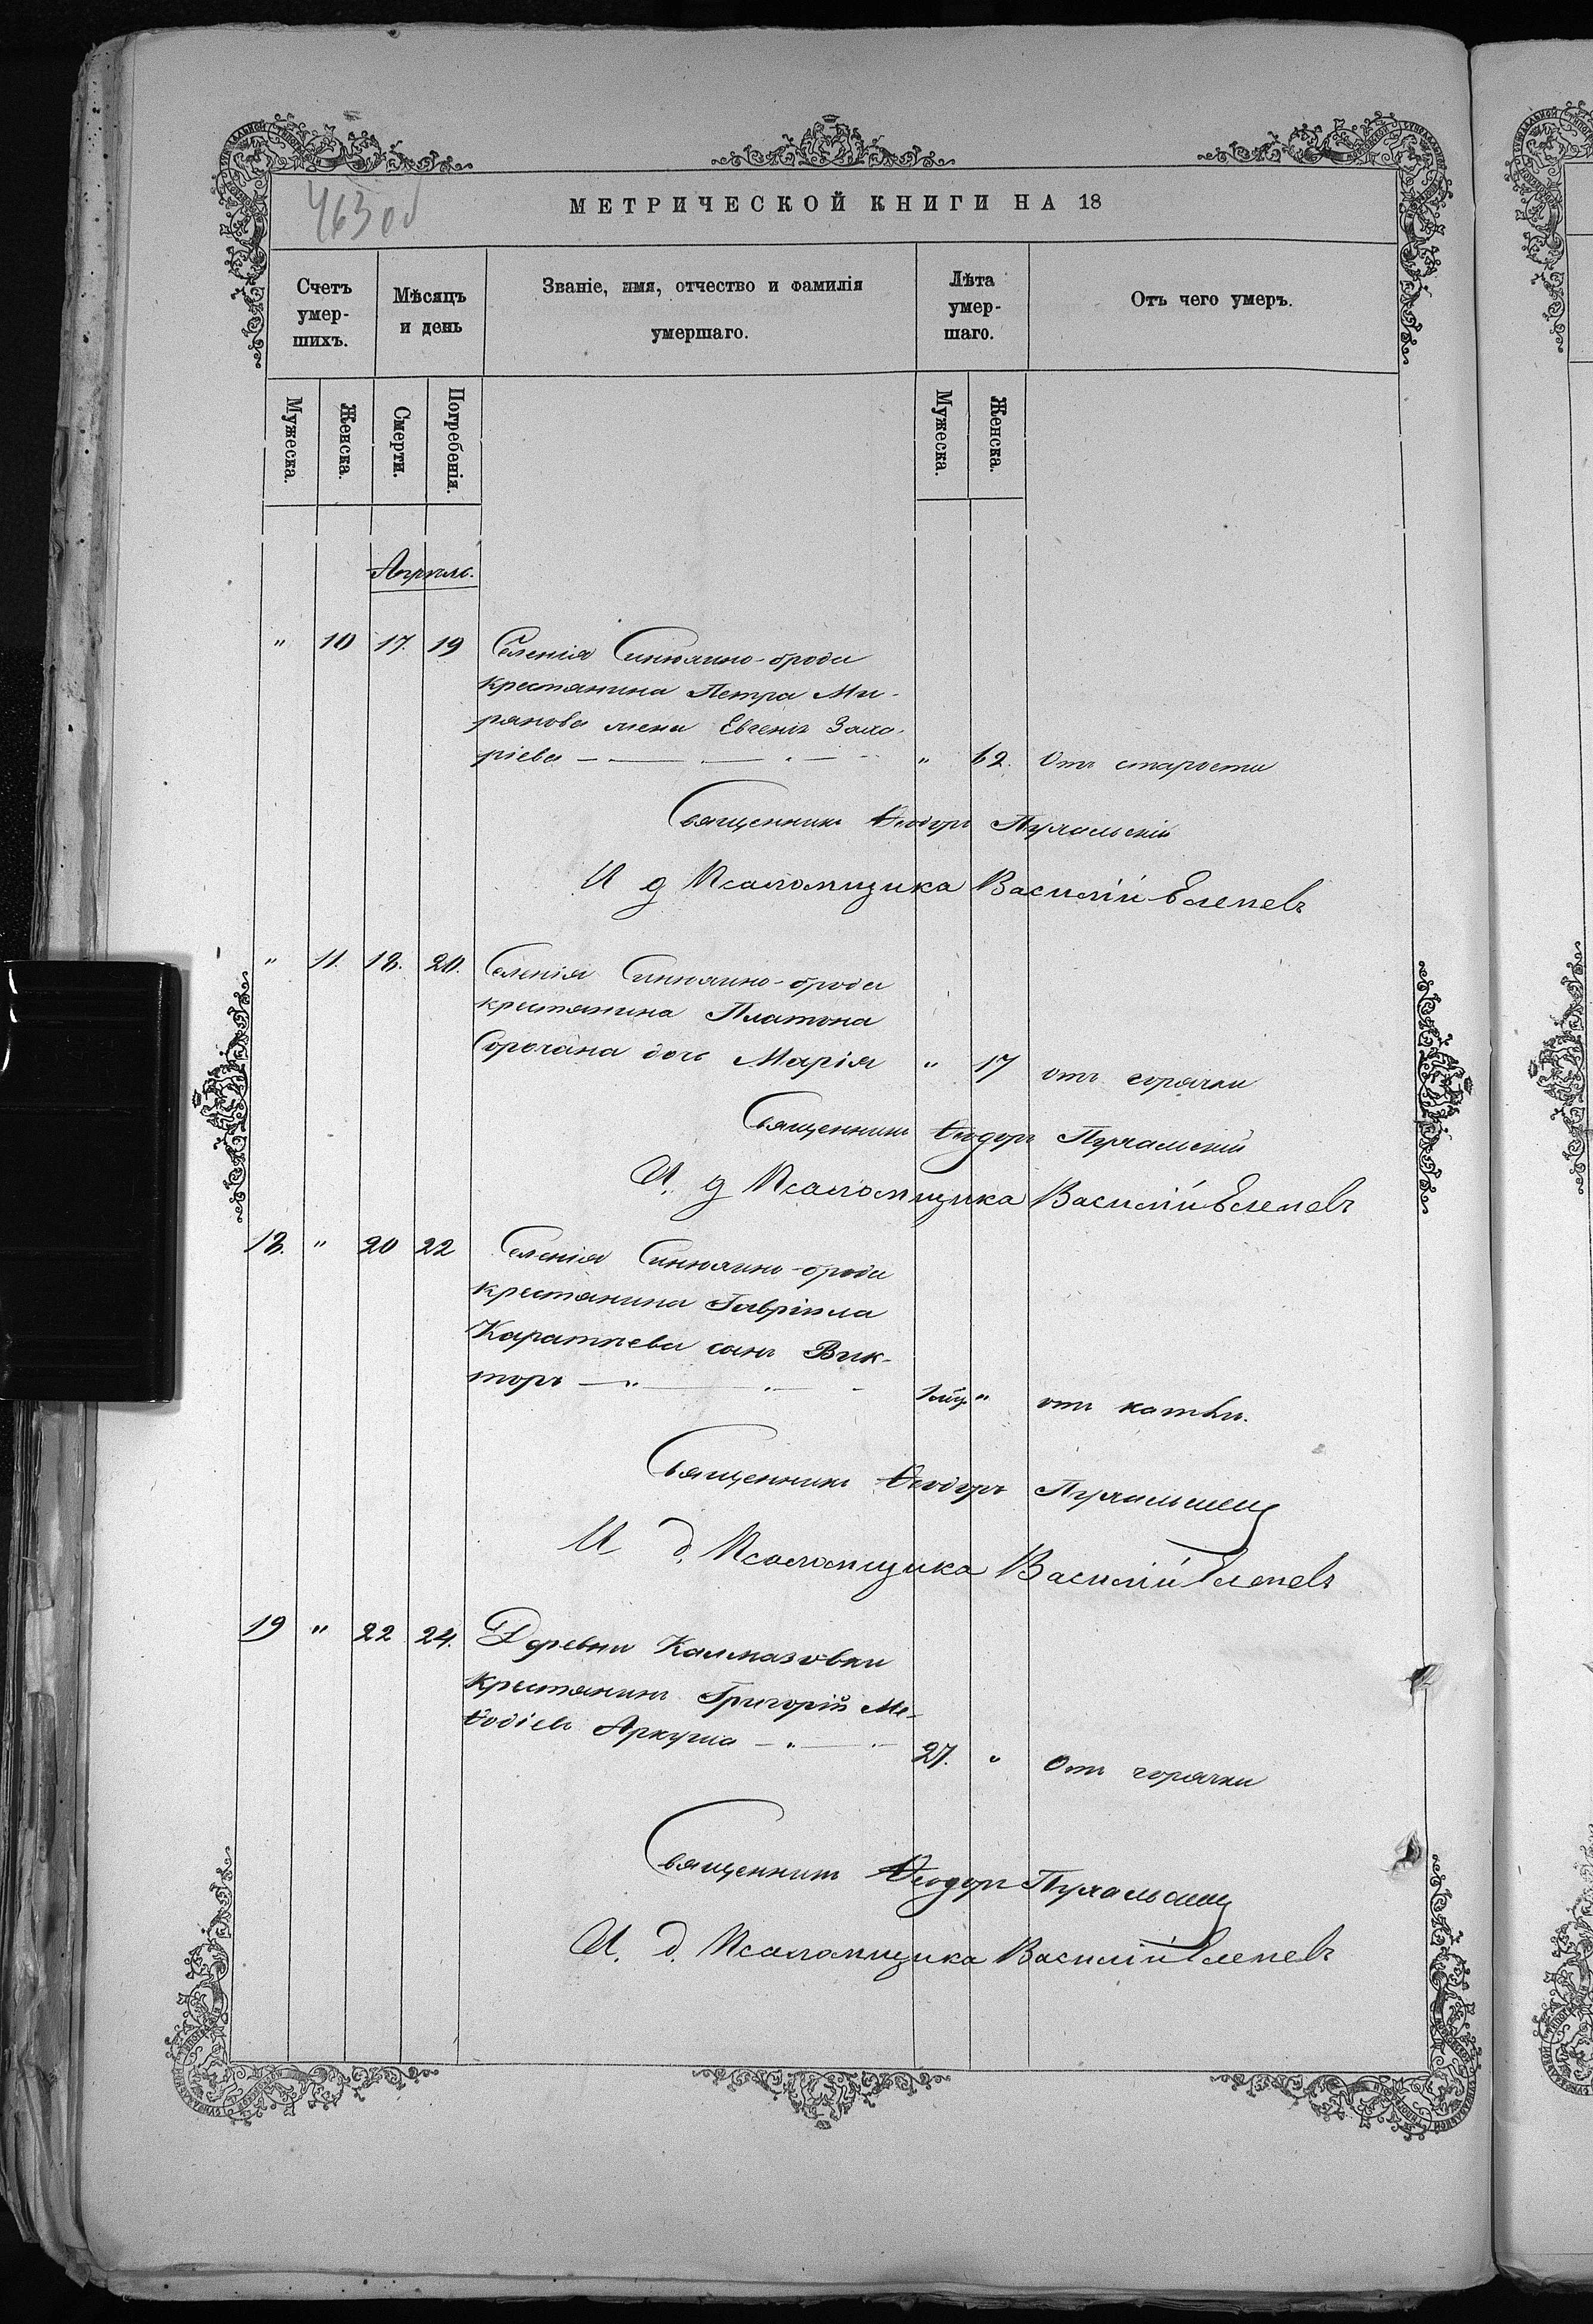 463 об
МЕТРИЧЕСКОЙ КНИГИ НА 18
Счетъ умер-шихъ.
Мѣсяцъ и день
Званіе, имя, отчество и фамилія умершаго.
Лѣта умер-шаго.
Отъ чего умеръ.
Мужеска.
Женска.
Смерти.
Погребенія.
Мужеска.
Женска.
Апрѣль.
" 10 17. 19 Селенія Синюхино-брода
крестянина Петра Ми-
ранова жена Евгенія Заха-
ріева " 62. Отъ старости
Священникъ Ѳеодоръ Пухальскій
И д Псаломщика Василій
" 11. 18. 20. Селенія Синюхино-брода
крестянина Платона
Сорочана дочь Марія " 17 отъ горячки
Священникъ Ѳеодоръ Пухальскій
И. д Псаломщика Василій
18. " 20 22 Селенія Синюхино-брода
крестянина Гавріила
Каратнева сынъ Вик-
торъ " отъ
Священникъ Ѳеодоръ Пухальскій
И д. Псаломщика Василій
19 " 22 24. Деревни Калмазовки
крестянинъ Григорій Ме-
ѳодіевъ Аркуша 27. " Отъ горячки
Священникъ Ѳеодоръ Пухальскій
И. д. Псаломщика Василій